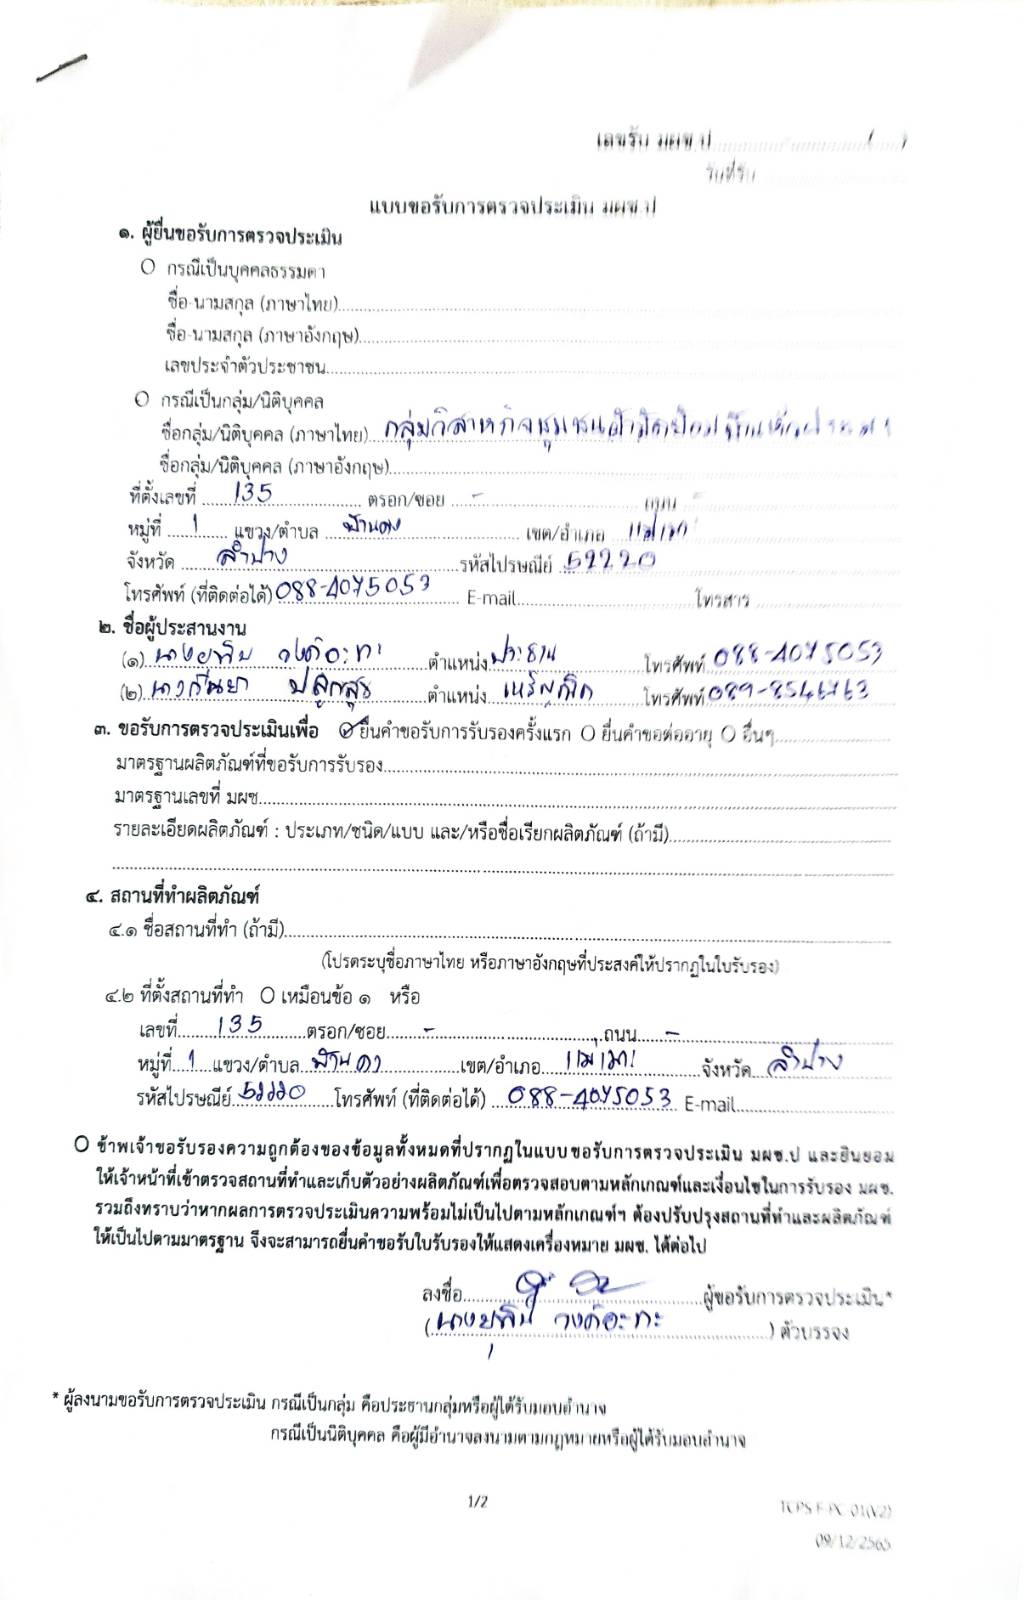 เลขรับ มผช.ป
วันที่รับ
แบบขอรับการตรวจประเมิน มผช.ป
๑. ผู้ยื่นขอรับการตรวจประเมิน
กรณีเป็นบุคคลธรรมดา
ชื่อ-นามสกุล (ภาษาไทย)
ชื่อ-นามสกุล (ภาษาอังกฤษ)
เลขประจำตัวประชาชน
กรณีเป็นกลุ่ม/นิติบุคคล
ชื่อกลุ่ม/นิติบุคคล (ภาษาไทย) กลุ่มวิสาหกิจชุมชน
ชื่อกลุ่ม/นิติบุคคล (ภาษาอังกฤษ)
ที่ตั้งเลขที่ 135 ตรอก/ซอย - ถนน
หมู่ที่ 1 แขวง/ตำบล บ้านดง เขต/อำเภอ แม่เมาะ
จังหวัด ลำปาง รหัสไปรษณีย์ 52220
โทรศัพท์ (ที่ติดต่อได้) 088-4075053 E-mail โทรสาร
๒. ชื่อผู้ประสานงาน
(๑) นางยุพิน วงค์อะทะ ตำแหน่ง ประธาน โทรศัพท์ 088-4075053
(๒) ตำแหน่ง เหรัญญิก โทรศัพท์ 089-8546763
๓. ขอรับการตรวจประเมินเพื่อ ยื่นคำขอรับการรับรองครั้งแรก ยื่นคำขอต่ออายุ อื่นๆ
มาตรฐานผลิตภัณฑ์ที่ขอรับการรับรอง
มาตรฐานเลขที่ มผช.
รายละเอียดผลิตภัณฑ์ : ประเภท/ชนิด/แบบ และ/หรือชื่อเรียกผลิตภัณฑ์ (ถ้ามี)
๔. สถานที่ทำผลิตภัณฑ์
๔.๑ ชื่อสถานที่ทำ (ถ้ามี)
(โปรดระบุชื่อภาษาไทย หรือภาษาอังกฤษที่ประสงค์ให้ปรากฏในใบรับรอง)
๔.๒ ที่ตั้งสถานที่ทำ เหมือนข้อ ๑ หรือ
เลขที่ 135 ตรอก/ซอย - ถนน -
หมู่ที่ 1 แขวง/ตำบล บ้านดง เขต/อำเภอ แม่เมาะ จังหวัด ลำปาง
รหัสไปรษณีย์ 52220 โทรศัพท์ (ที่ติดต่อได้) 088-4075053 E-mail
ข้าพเจ้าขอรับรองความถูกต้องของข้อมูลทั้งหมดที่ปรากฏในแบบขอรับการตรวจประเมิน มผช.ป และยินยอม
ให้เจ้าหน้าที่เข้าตรวจสถานที่ทำและเก็บตัวอย่างผลิตภัณฑ์เพื่อตรวจสอบตามหลักเกณฑ์และเงื่อนไขในการรับรอง มผช.
รวมถึงทราบว่าหากผลการตรวจประเมินความพร้อมไม่เป็นไปตามหลักเกณฑ์ฯ ต้องปรับปรุงสถานที่ทำและผลิตภัณฑ์
ให้เป็นไปตามมาตรฐาน จึงจะสามารถยื่นคำขอรับใบรับรองให้แสดงเครื่องหมาย มผช. ได้ต่อไป
ลงชื่อ ผู้ขอรับการตรวจประเมิน*
(นางยุพิน วงค์อะทะ) ตัวบรรจง
* ผู้ลงนามขอรับการตรวจประเมิน กรณีเป็นกลุ่ม คือประธานกลุ่มหรือผู้ได้รับมอบอำนาจ
กรณีเป็นนิติบุคคล คือผู้มีอำนาจลงนามตามกฎหมายหรือผู้ได้รับมอบอำนาจ
1/2
TCPS-F-PC-01(V2)
09/12/2565